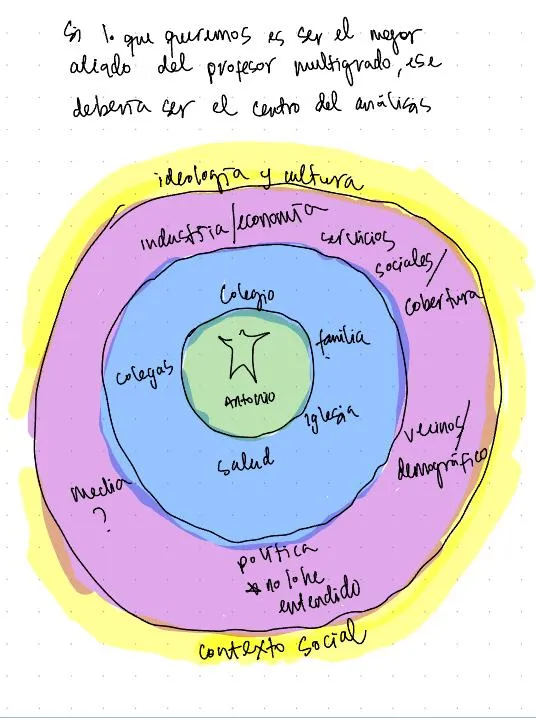 Si lo que queremos es ser el mejor
aliado del profesor multigrado, ese
debería ser el centro del análisis
ideología y cultura
industria/economía
servicios
sociales/
cobertura
colegio
familia
colegas
Antonio
iglesia
salud
vecinos/
demográfico
media
?
política
* no lo he
entendido
contexto social